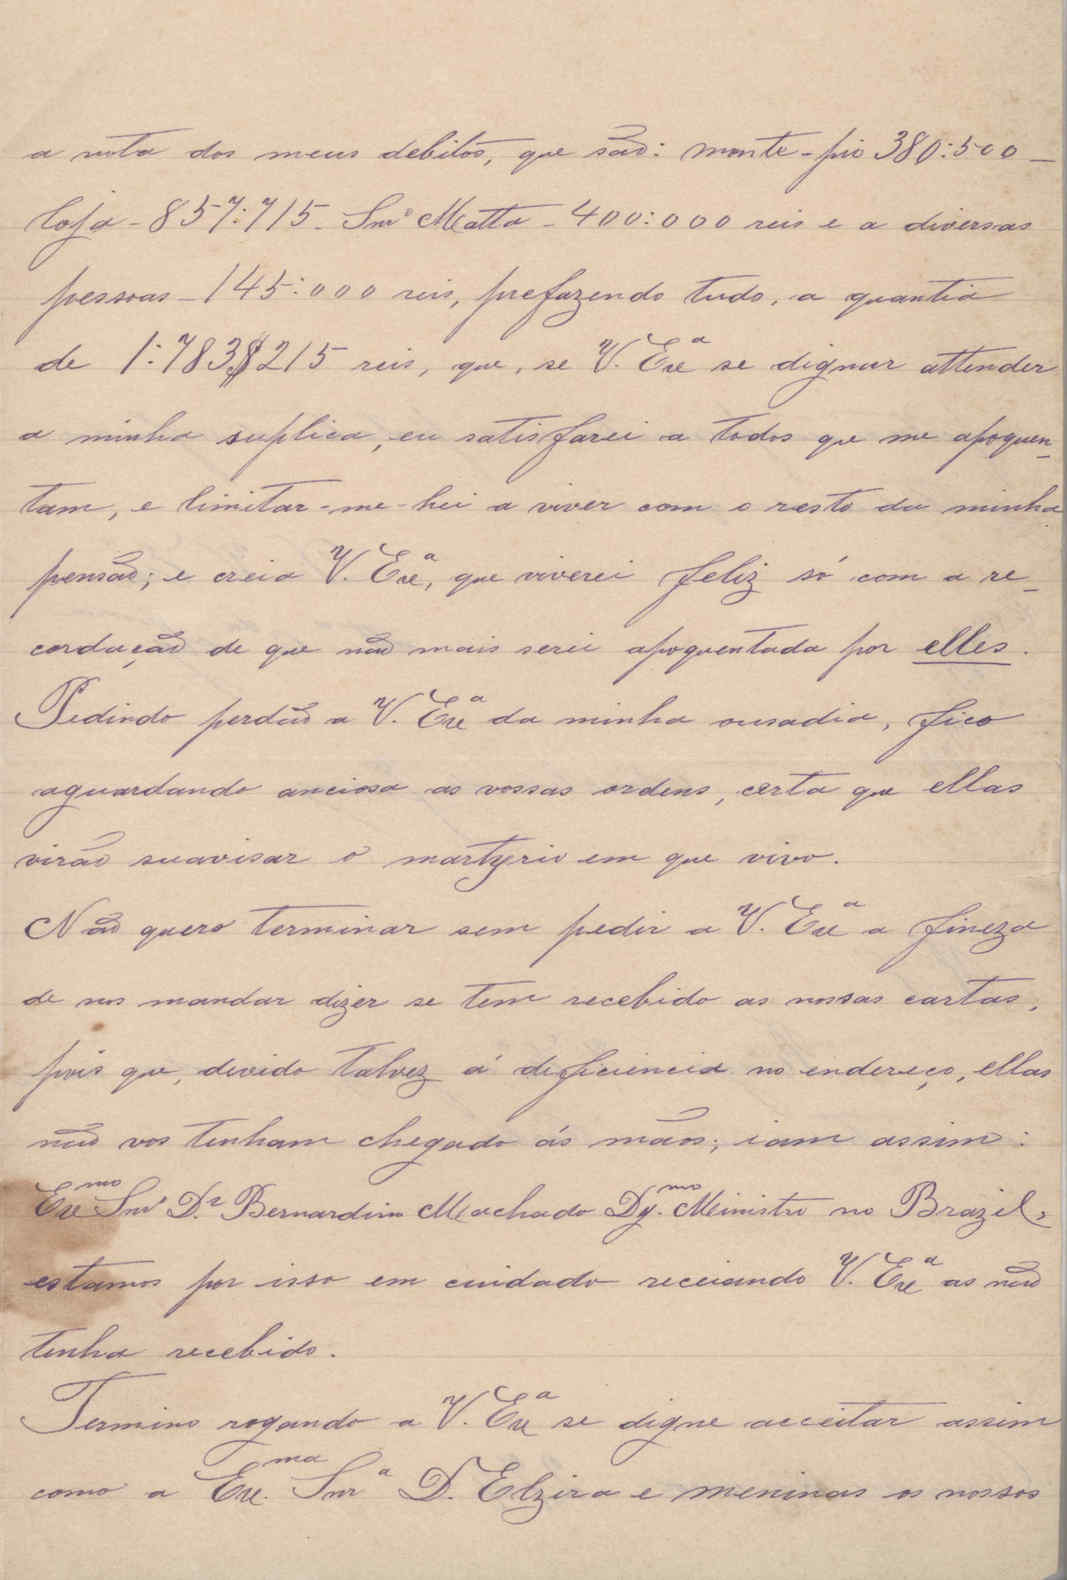 a nota dos meus debitos, que são: monte-pio 380:500 –
loja - 857:715 - Snr° Matta - 400:000 reis e a diversas
pessoas - 145:000 reis, prefazendo tudo, a quantia
de 1:783$215 reis, que, se V. Exª se dignar attender
a minha suplica, eu satisfarei a todos que me apoquen-
tam, e limitar-me-hei a viver com o resto da minha
pensão; e creia V. Exª, que viverei feliz só com a re-
cordação de que não mais serei apoquentada por elles.
Pedindo perdão a V. Exª da minha ousadia, fico
aguardando anciosa as vossas ordens, certa que ellas
virão suavisar o martyrio em que vivo.
Não quero terminar sem pedir a V. Exª a fineza
de nos mandar dizer se tem recebido as nossas cartas,
pois que, devido talvez á deficiencia no endereço, ellas
não vos tenham chegado ás mãos; iam assim:
Exmo Snr° D.r Bernardino Machado Dg.mo Ministro no Brazil,
estamos por isso em cuidado receiando V. Exª as não
tenha recebido.
Termino rogando a V. Exª se digne acceitar assim
como a Ex.ma Snrª D. Elzira e meninas os nossos